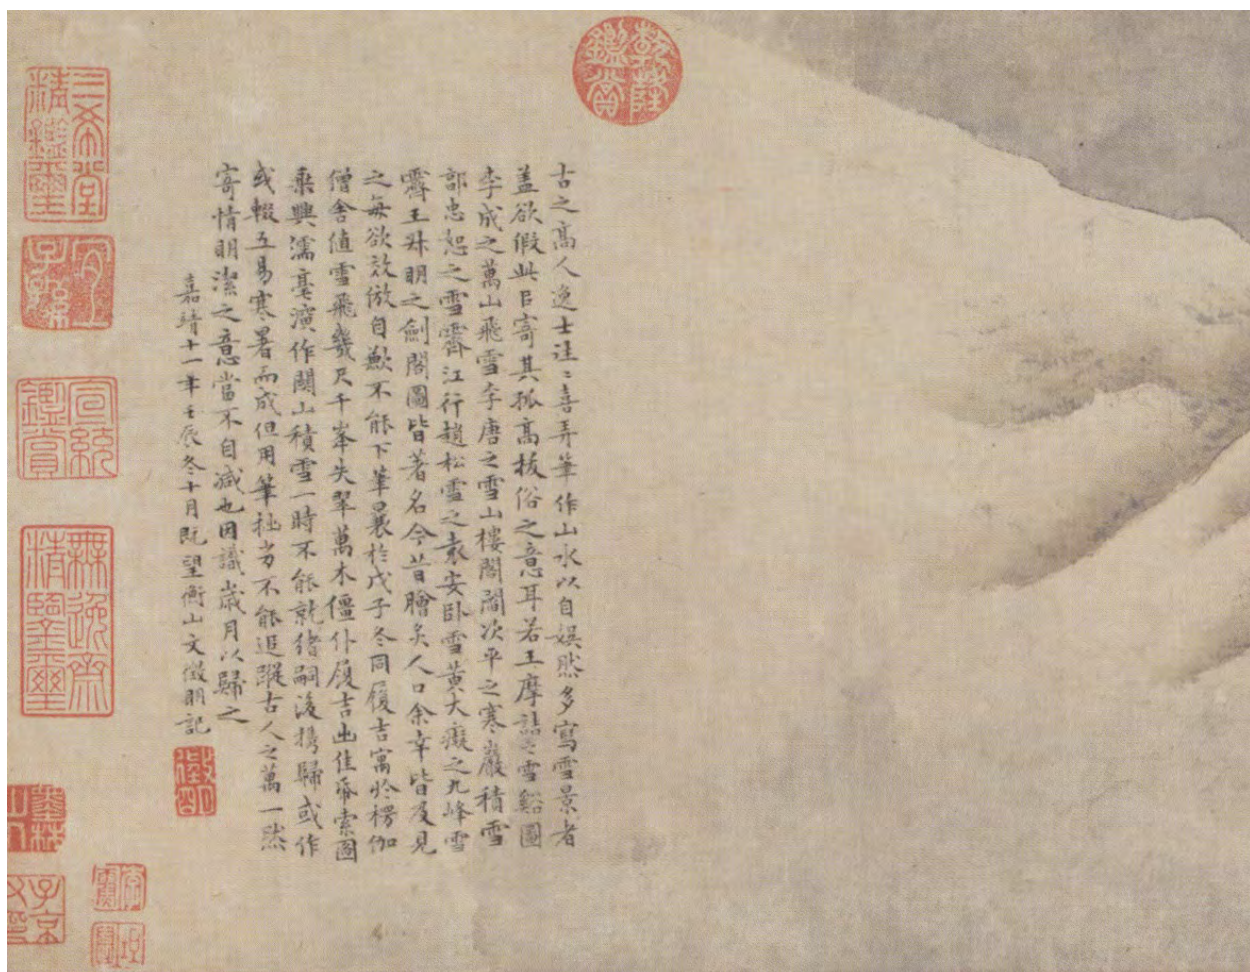 乾隆鑑賞
古之高人逸士往〻喜弄筆作山水以自娛然多寫雪景者
蓋欲假此以寄其孤高拔俗之意耳若王摩詰之雪谿圖
李成之萬山飛雪李唐之雪山樓閣閻次平之寒巖積雪
郭忠恕之雪霽江行趙松雪之袁安臥雪黃大癡之九峰雪
霽王叔明之劍閣圖皆著名今昔膾炙人口余幸皆及見
之每欲效倣自歉不能下筆曩於戊子冬同履吉寓於楞伽
僧舍值雪飛幾尺千峯失翠萬木僵仆履吉出佳帋索圖
乘興濡毫演作關山積雪一時不能就緒嗣後携歸或作
或輟五易寒暑而成但用筆拙劣不能追蹤古人之萬一然
寄情明潔之意當不自減也因識歲月以歸之
嘉靖十一年壬辰冬十月既望衡山文徵明記
徵明
三希堂精鑑璽
宜子孫
宣統鑑賞
無逸齋精鑒璽
墨林山人
子京父印